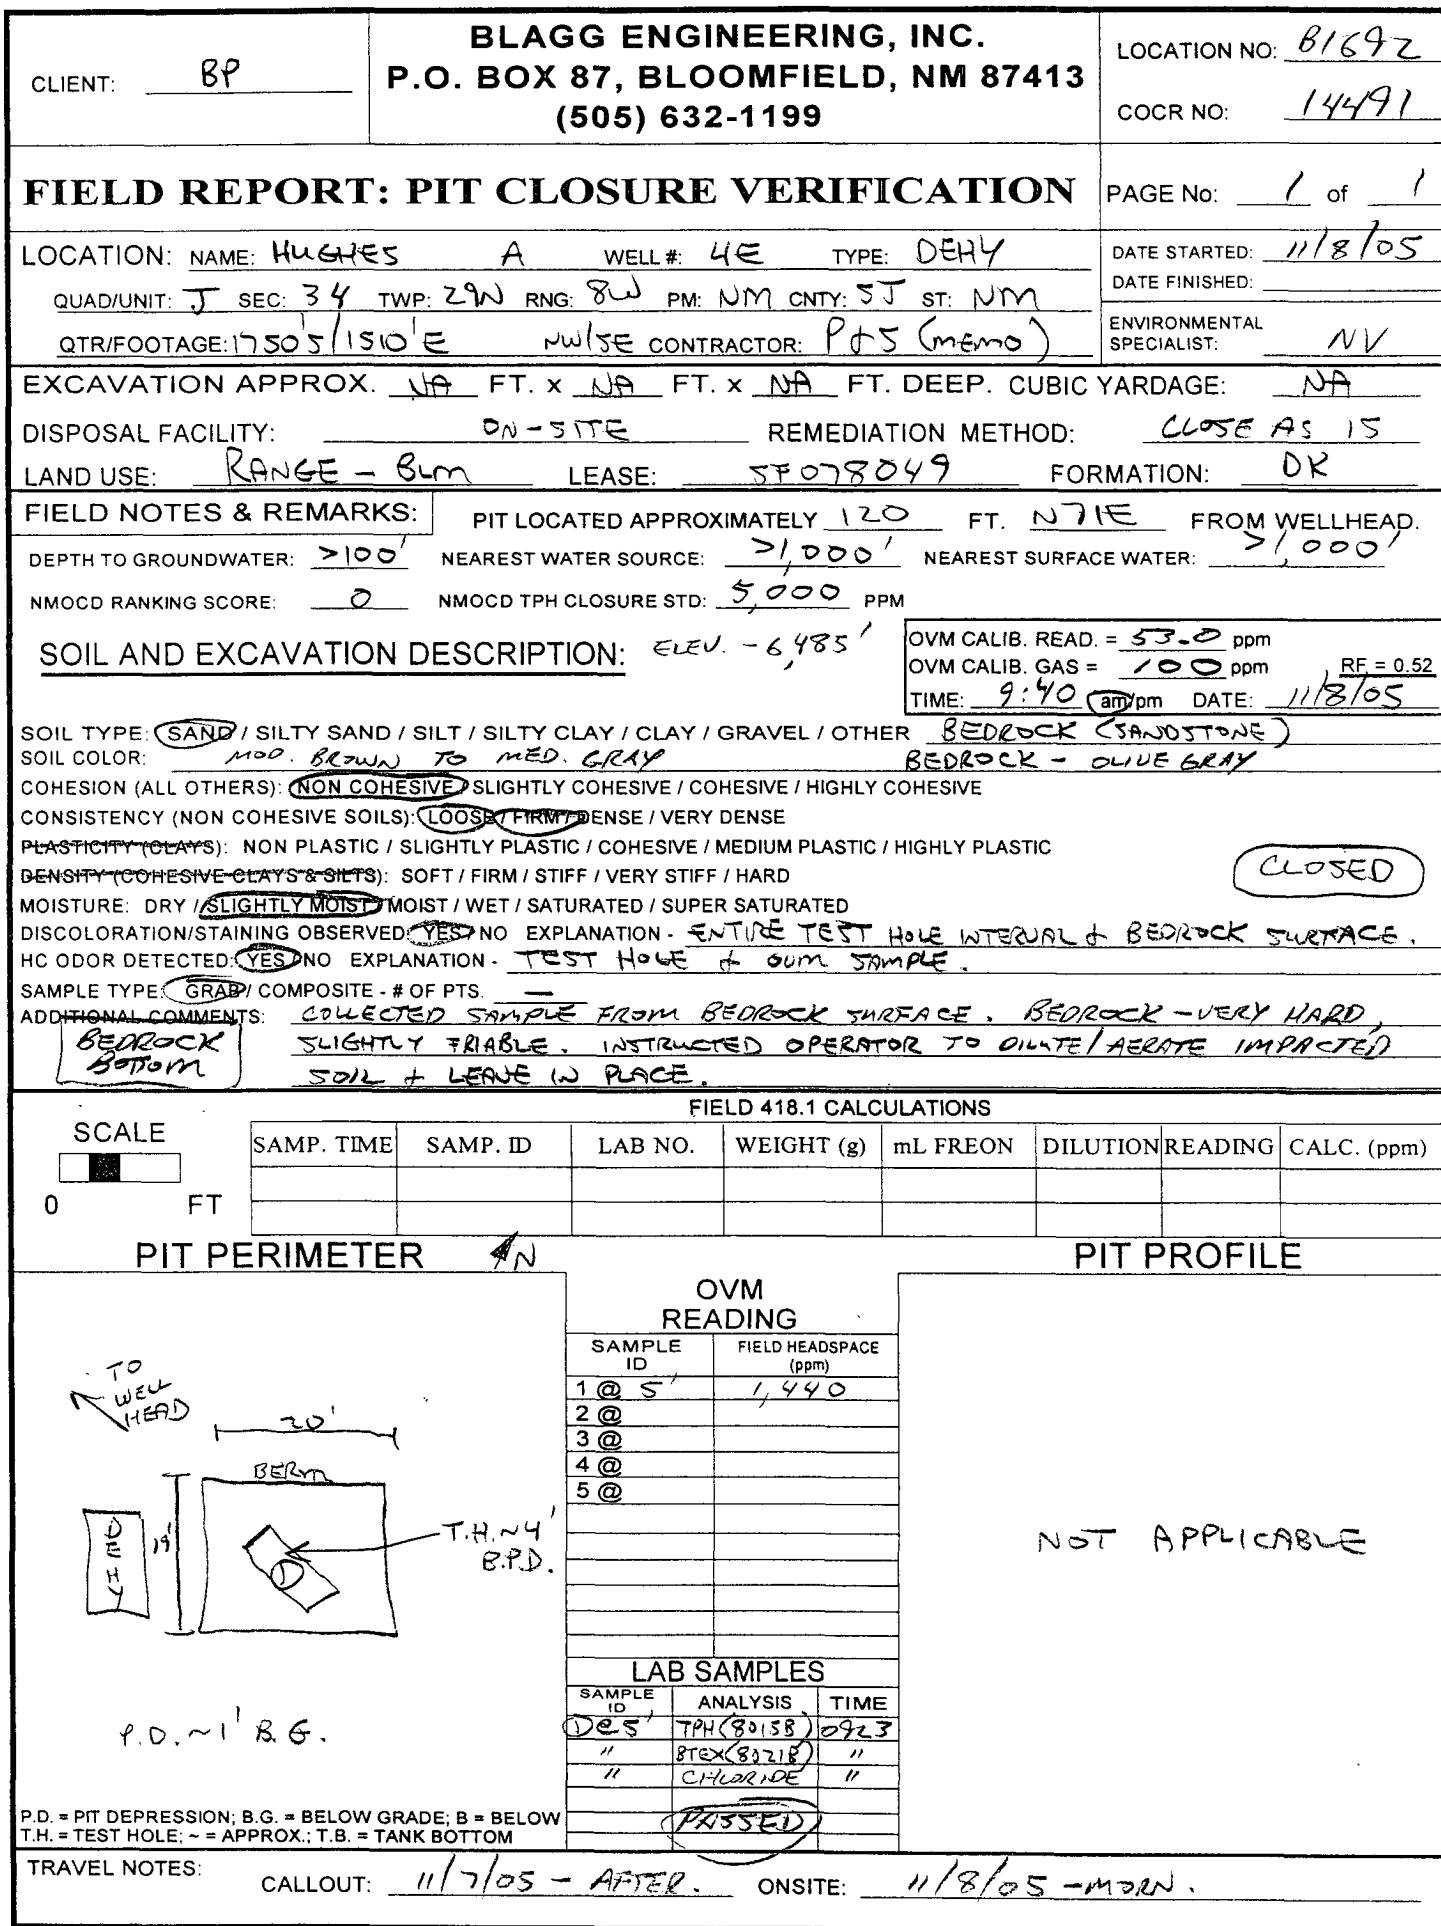 CLIENT: BP
BLAGG ENGINEERING, INC.
P.O. BOX 87, BLOOMFIELD, NM 87413
(505) 632-1199
LOCATION NO: B1692
COCR NO: 14491
FIELD REPORT: PIT CLOSURE VERIFICATION
PAGE No: 1 of 1
LOCATION: NAME: HUGHES A WELL #: 4E TYPE: DEHY
QUAD/UNIT: J SEC: 34 TWP: 29N RNG: 8W PM: NM CNTY: SJ ST: NM
QTR/FOOTAGE: 1750'S/1510'E NW/SE CONTRACTOR: P+S (MEMO)
DATE STARTED: 11/8/05
DATE FINISHED:
ENVIRONMENTAL SPECIALIST: NV
EXCAVATION APPROX. NA FT. x NA FT. x NA FT. DEEP. CUBIC YARDAGE: NA
DISPOSAL FACILITY: ON-SITE REMEDIATION METHOD: CLOSE AS IS
LAND USE: RANGE - BLM LEASE: SF078049 FORMATION: DK
FIELD NOTES & REMARKS: PIT LOCATED APPROXIMATELY 120 FT. N71E FROM WELLHEAD.
DEPTH TO GROUNDWATER: >100' NEAREST WATER SOURCE: >1,000' NEAREST SURFACE WATER: >1,000'
NMOCD RANKING SCORE: 0 NMOCD TPH CLOSURE STD: 5,000 PPM
SOIL AND EXCAVATION DESCRIPTION: ELEV. - 6,485'
OVM CALIB. READ. = 53.0 ppm
OVM CALIB. GAS = 100 ppm RF = 0.52
TIME: 9:40 am/pm DATE: 11/8/05
SOIL TYPE: SAND / SILTY SAND / SILT / SILTY CLAY / CLAY / GRAVEL / OTHER BEDROCK (SANDSTONE)
SOIL COLOR: MOD. BROWN TO MED. GRAY BEDROCK - OLIVE GRAY
COHESION (ALL OTHERS): NON COHESIVE / SLIGHTLY COHESIVE / COHESIVE / HIGHLY COHESIVE
CONSISTENCY (NON COHESIVE SOILS): LOOSE / FIRM / DENSE / VERY DENSE
PLASTICITY (CLAYS): NON PLASTIC / SLIGHTLY PLASTIC / COHESIVE / MEDIUM PLASTIC / HIGHLY PLASTIC
DENSITY (COHESIVE CLAYS & SILTS): SOFT / FIRM / STIFF / VERY STIFF / HARD
CLOSED
MOISTURE: DRY / SLIGHTLY MOIST / MOIST / WET / SATURATED / SUPER SATURATED
DISCOLORATION/STAINING OBSERVED: YES / NO EXPLANATION - ENTIRE TEST HOLE INTERVAL + BEDROCK SURFACE.
HC ODOR DETECTED: YES / NO EXPLANATION - TEST HOLE + OVM SAMPLE.
SAMPLE TYPE: GRAB / COMPOSITE - # OF PTS. —
ADDITIONAL COMMENTS: COLLECTED SAMPLE FROM BEDROCK SURFACE. BEDROCK - VERY HARD,
SLIGHTLY FRIABLE. INSTRUCTED OPERATOR TO DILUTE/AERATE IMPACTED
SOIL + LEAVE IN PLACE.
BEDROCK
BOTTOM
FIELD 418.1 CALCULATIONS
SCALE
0 FT
SAMP. TIME SAMP. ID LAB NO. WEIGHT (g) mL FREON DILUTION READING CALC. (ppm)
PIT PERIMETER N
PIT PROFILE
OVM
READING
SAMPLE ID FIELD HEADSPACE (ppm)
1 @ 5' 1,440
2 @
3 @
4 @
5 @
TO
WELL
HEAD
20'
BERM
DEHY
19'
T.H. ~4'
B.P.D.
1
NOT APPLICABLE
P.D. ~1' B.G.
LAB SAMPLES
SAMPLE ID ANALYSIS TIME
1 @ 5' TPH (8015B) 0923
" BTEX (8021B) "
" CHLORIDE "
PASSED
P.D. = PIT DEPRESSION; B.G. = BELOW GRADE; B = BELOW
T.H. = TEST HOLE; ~ = APPROX.; T.B. = TANK BOTTOM
TRAVEL NOTES: CALLOUT: 11/7/05 - AFTER. ONSITE: 11/8/05 - MORN.